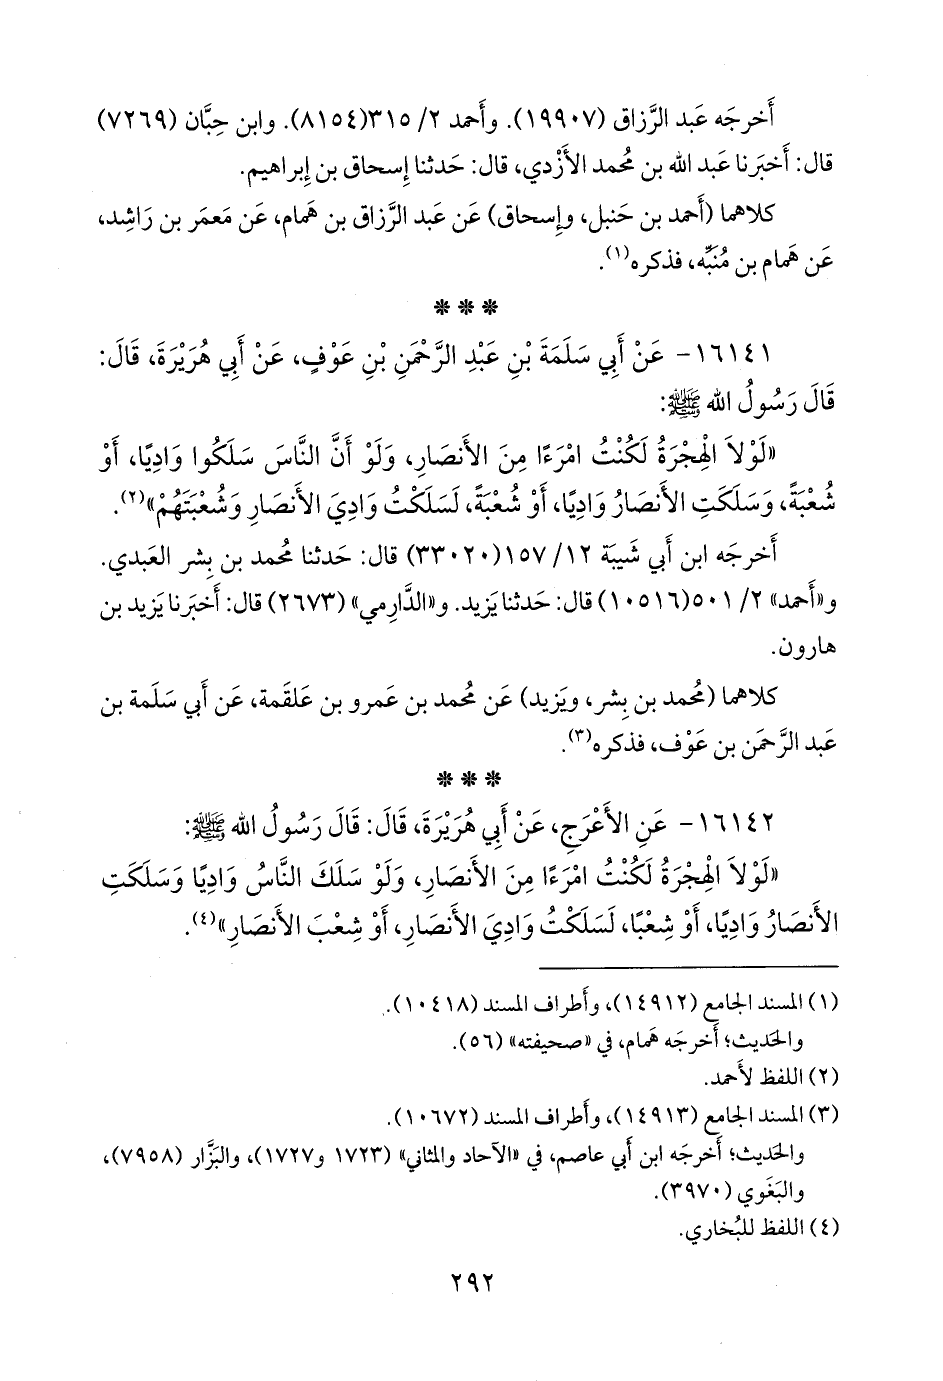 أَخرجَه عَبد الرَّزاق (١٩٩٠٧). وأَحمد ٢/ ٣١٥(٨١٥٤). وابن حِبَّان (٧٢٦٩)
قال: أَخبَرنا عَبد الله بن مُحمد الأَزْدي، قال: حَدثنا إِسحاق بن إِبراهيم.
كلاهما (أَحمد بن حَنبل، وإِسحاق) عَن عَبد الرَّزاق بن هَمام، عَن مَعمَر بن رَاشِد،
عَن هَمام بن مُنَبِّه، فذكره(١).
* * *
١٦١٤١- عَنْ أَبِي سَلَمَةَ بْنِ عَبْدِ الرَّحْمَنِ بْنِ عَوْفٍ، عَنْ أَبِي هُرَيْرَةَ، قَالَ:
قَالَ رَسُولُ الله ﷺ:
«لَوْلاَ الْهِجْرَةُ لَكُنْتُ امْرَءًا مِنَ الأَنصَارِ، وَلَوْ أَنَّ النَّاسَ سَلَكُوا وَادِيًا، أَوْ
شُعْبَةً، وَسَلَكَتِ الأَنصَارُ وَادِيًا، أَوْ شُعْبَةً، لَسَلَكْتُ وَادِيَ الأَنصَارِ وَشُعْبَتَهُمْ»(٢).
أَخرجَه ابن أَبي شَيبة ١٢/ ١٥٧(٣٣٠٢٠) قال: حَدثنا مُحمد بن بِشر العَبدي.
و«أَحمد» ٢/ ٥٠١(١٠٥١٦) قال: حَدثنا يَزيد. و«الدَّارِمي» (٢٦٧٣) قال: أَخبَرنا يَزيد بن
هارون.
كلاهما (مُحمد بن بِشر، ويَزيد) عَن مُحمد بن عَمرو بن عَلقَمة، عَن أَبي سَلَمة بن
عَبد الرَّحمَن بن عَوْف، فذكره(٣).
* * *
١٦١٤٢- عَنِ الأَعْرَجِ، عَنْ أَبِي هُرَيْرَةَ، قَالَ: قَالَ رَسُولُ الله ﷺ:
«لَوْلاَ الْهِجْرَةُ لَكُنْتُ امْرَءًا مِنَ الأَنصَارِ، وَلَوْ سَلَكَ النَّاسُ وَادِيًا وَسَلَكَتِ
الأَنصَارُ وَادِيًا، أَوْ شِعْبًا، لَسَلَكْتُ وَادِيَ الأَنصَارِ، أَوْ شِعْبَ الأَنصَارِ»(٤).
(١) المسند الجامع (١٤٩١٢)، وأَطراف المسند (١٠٤١٨).
والحَديث؛ أَخرجَه هَمام، في «صحيفته» (٥٦).
(٢) اللفظ لأَحمد.
(٣) المسند الجامع (١٤٩١٣)، وأَطراف المسند (١٠٦٧٢).
والحَديث؛ أَخرجَه ابن أَبي عاصم، في «الآحاد والمثاني» (١٧٢٣ و١٧٢٧)، والبَزَّار (٧٩٥٨)،
والبَغَوي (٣٩٧٠).
(٤) اللفظ للبُخاري.
٢٩٢